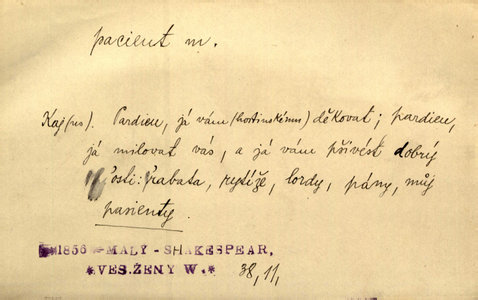 pacient m.
Kaj(us). Pardieu, já vám (hostinskému) děkovat; pardieu,
já milovat vás, a já vám přivést dobrý
osti: hrabata, rytíře, lordy, pány, můj
pasienty.
1856 MALÝ - SHAKESPEAR,
*VES.ŽENY W.* 38,11,